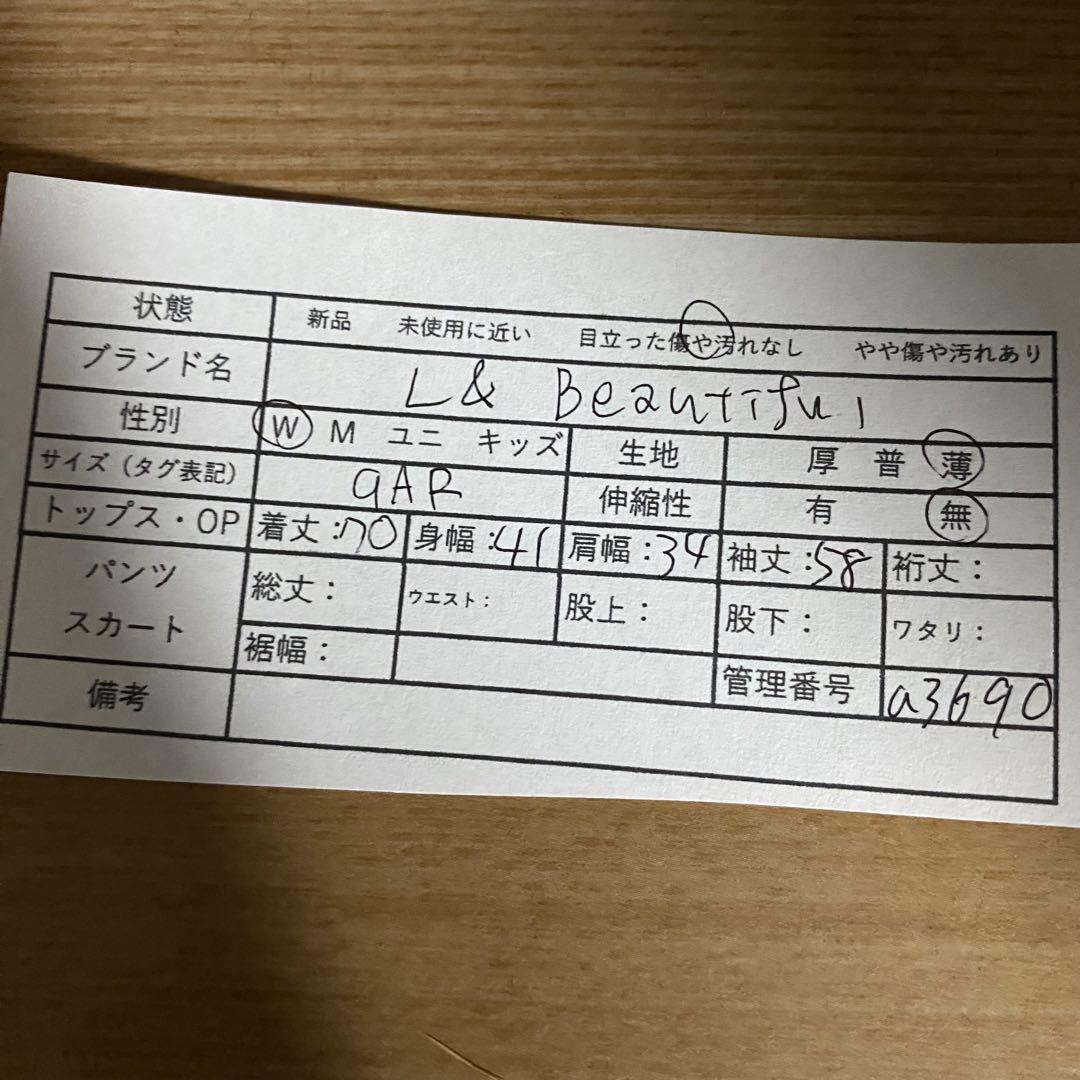 状態 新品 未使用に近い 目立った傷や汚れなし やや傷や汚れあり
ブランド名 L& Beautiful
性別 W M ユニ キッズ 生地 厚 普 薄
サイズ（タグ表記） 9AR 伸縮性 有 無
トップス・OP 着丈：70 身幅：41 肩幅：34 袖丈：58 裄丈：
パンツ スカート 総丈： ウエスト： 股上： 股下： ワタリ：
裾幅： 管理番号 a3690
備考